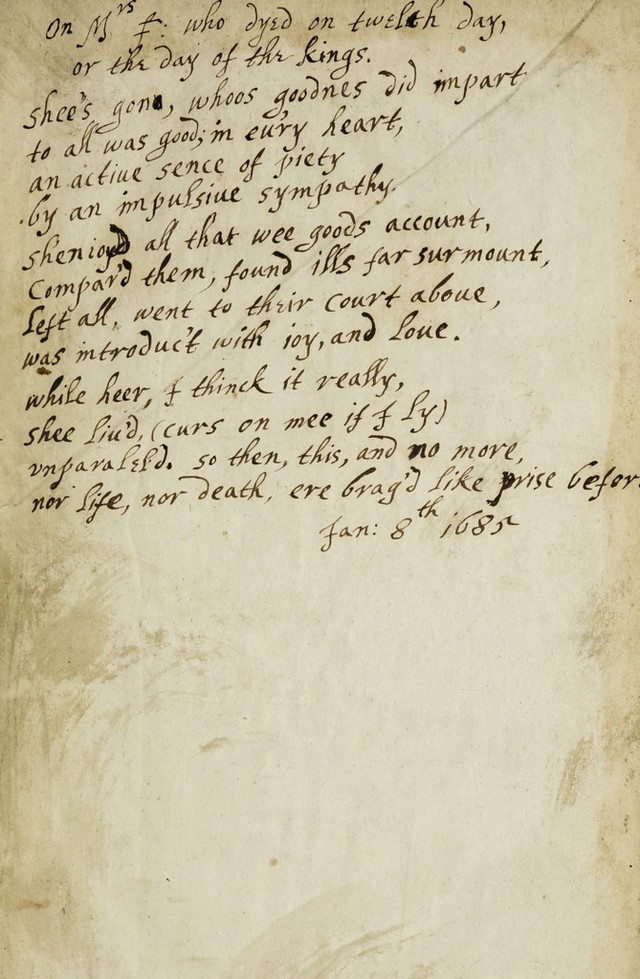 On Mrs F: who dyed on twelth day,
or the day of the kings.
shee's gone, whoos goodnes did impart
to all was good; in eu'ry heart,
an active sence of piety
by an impulsive sympathy.
shenioyd all that wee goods account,
Compar'd them, found ills far surmount,
Left all, went to their Court above,
was introduc't with ioy, and love.
while heer, I thinck it really,
shee liu'd, (curs on mee if I ly)
vnparalel'd. so then, this, and no more,
nor life, nor death, ere brag'd like prise befor
Jan: 8th 1685